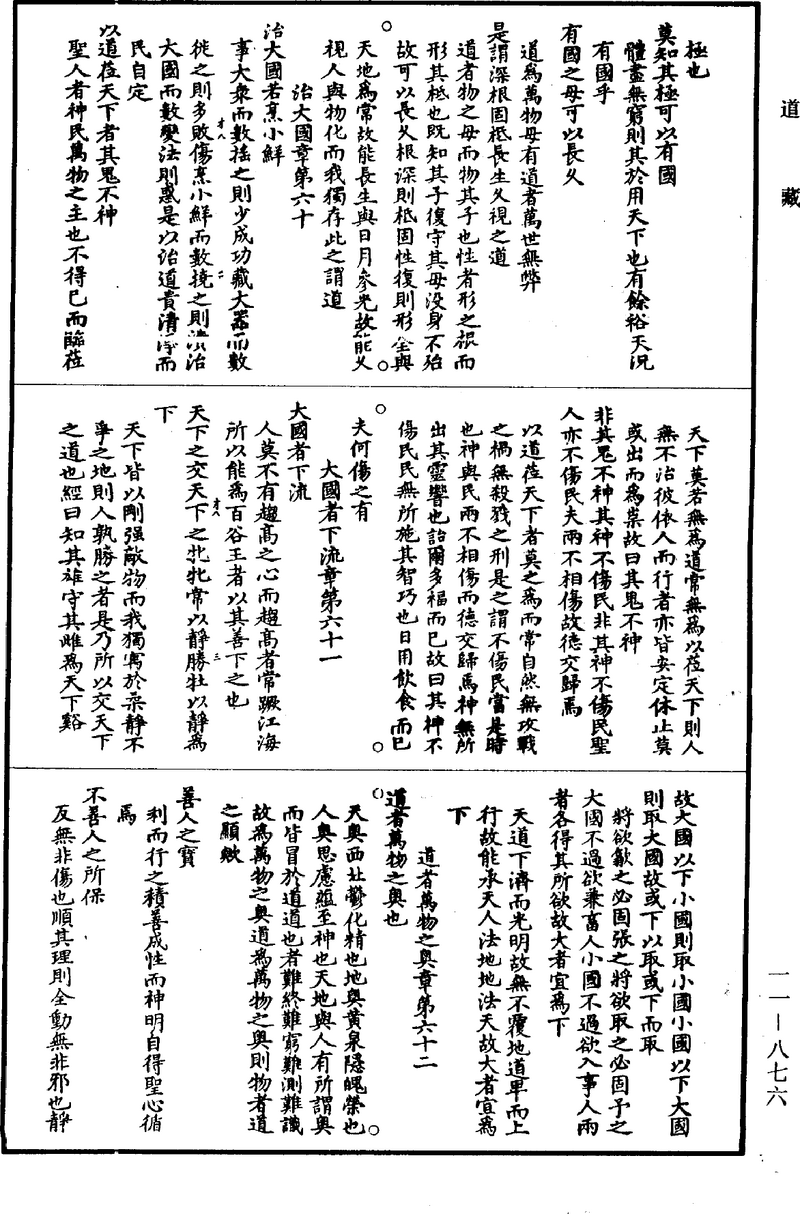 道藏
極也
莫知其極可以有國
體盡無窮則其於用天下也有餘裕天況
有國乎
有國之母可以長久
道爲萬物母有道者萬世無弊
是謂深根固柢長生久視之道
道者物之母而物其子也性者形之根而
形其柢也旣知其子復守其母没身不殆
故可以長久根深則柢固性復則形全與
天地爲常故能長生與日月參光故能久
視人與物化而我獨存此之謂道
治大國章第六十
治大國若烹小鮮
事大衆而數搖之則少成功藏大器而數
徙之則多敗傷烹小鮮而數撓之則潰治
大國而數變法則惑是以治道貴清淨而
民自定
以道莅天下者其鬼不神
聖人者神民萬物之主也不得已而臨莅
天下莫若無爲道常無爲以莅天下則人
無不治彼依人而行者亦皆安定休止莫
或出而爲祟故曰其鬼不神
非其鬼不神其神不傷民非其神不傷民聖
人亦不傷民夫兩不相傷故德交歸焉
以道莅天下者莫之爲而常自然無攻戰
之禍無殺戮之刑是之謂不傷民當是時
也神與民兩不相傷而德交歸焉神無所
出其靈響也詒爾多福而已故曰其神不
傷民民無所施其智巧也日用飲食而已
夫何傷之有
大國者下流章第六十一
大國者下流
人莫不有趨高之心而趨高者常蹶江海
所以能爲百谷王者以其善下之也
天下之交天下之牝牝常以靜勝牡以靜爲
下
天下皆以剛强敵物而我獨寓於柔靜不
爭之地則人孰勝之者是乃所以交天下
之道也經曰知其雄守其雌爲天下谿
故大國以下小國則取小國小國以下大國
則取大國故或下以取或下而取
將欲歙之必固張之將欲取之必固予之
大國不過欲兼畜人小國不過欲入事人兩
者各得其所欲故大者宜爲下
天道下濟而光明故無不覆地道卑而上
行故能承天人法地地法天故大者宜爲
下
道者萬物之奧章第六十二
道者萬物之奧也
天奧西北鬱化精也地奧黄泉隱魄榮也
人奧思慮蘊至神也天地與人有所謂奧
而皆冒於道道也者難終難窮難測難識
故爲萬物之奧道爲萬物之奧則物者道
之顯歟
善人之寶
利而行之積善成性而神明自得聖心循
焉
不善人之所保
反無非傷也順其理則全動無非邪也靜
一一—八七六